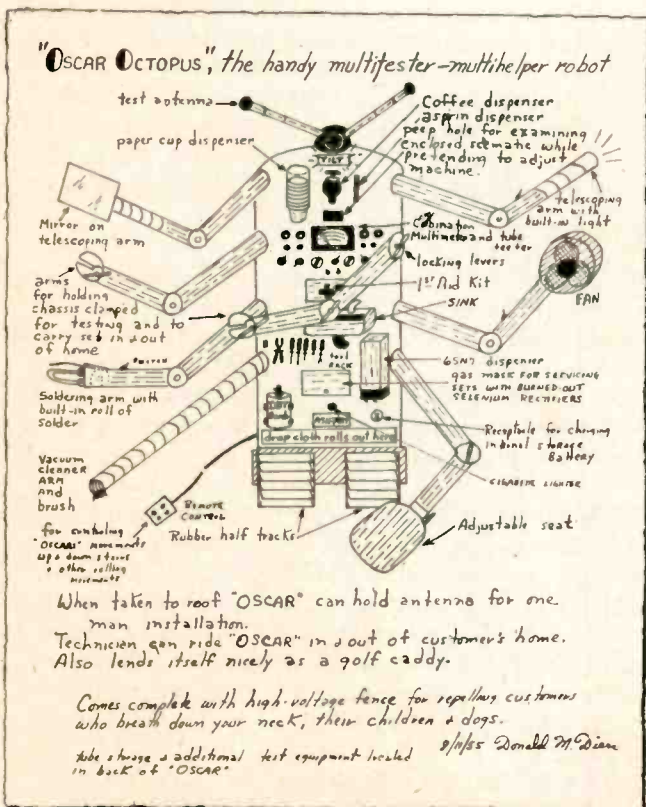 "OSCAR OCTOPUS", the handy multitester-multihelper robot
test antenna
paper cup dispenser
Coffee dispenser
aspirin dispenser
peep hole for examining
enclosed scematic while
pretending to adjust
machine.
Mirror on
telescoping arm
telescoping
arm with
built-in light
Multimeter and tube
tester
locking levers
1st Aid Kit
SINK
FAN
arms
for holding
chassis clamped
for testing and to
carry set in & out
of home
Soldering arm with
built-in roll of
solder
tool
RACK
6SN7 dispenser
gas mask for servicing
sets with burned-out
selenium rectifiers
Receptacle for charging
internal storage
Battery
drop cloth rolls out here
CIGARETTE LIGHTER
Vacuum
cleaner
ARM
and
brush
REMOTE
CONTROL
for controling
"OSCARS" movements
up & down stairs
& other rolling
movements
Rubber half tracks
Adjustable seat
When taken to roof "OSCAR" can hold antenna for one
man installation.
Technician can ride "OSCAR" in & out of customer's home.
Also lends itself nicely as a golf caddy.
Comes complete with high-voltage fence for repelling customers
who breath down your neck, their children & dogs.
tube storage & additional test equipment located
in back of "OSCAR"
Donald M.